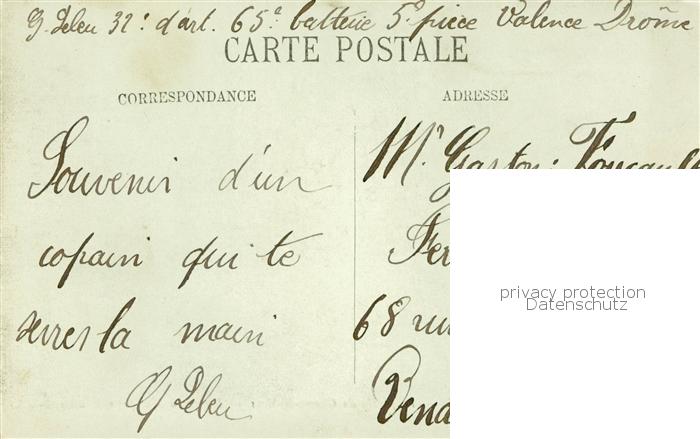 G. Peleu 32e d'art. 65e batterie 5e pièce Valence Drôme
CARTE POSTALE
CORRESPONDANCE
ADRESSE
Souvenir d'un
copain qui te
serres la main
G Peleu
Mr Gaston Foucault
Fer
68 rue
Vend
privacy protection
Datenschutz